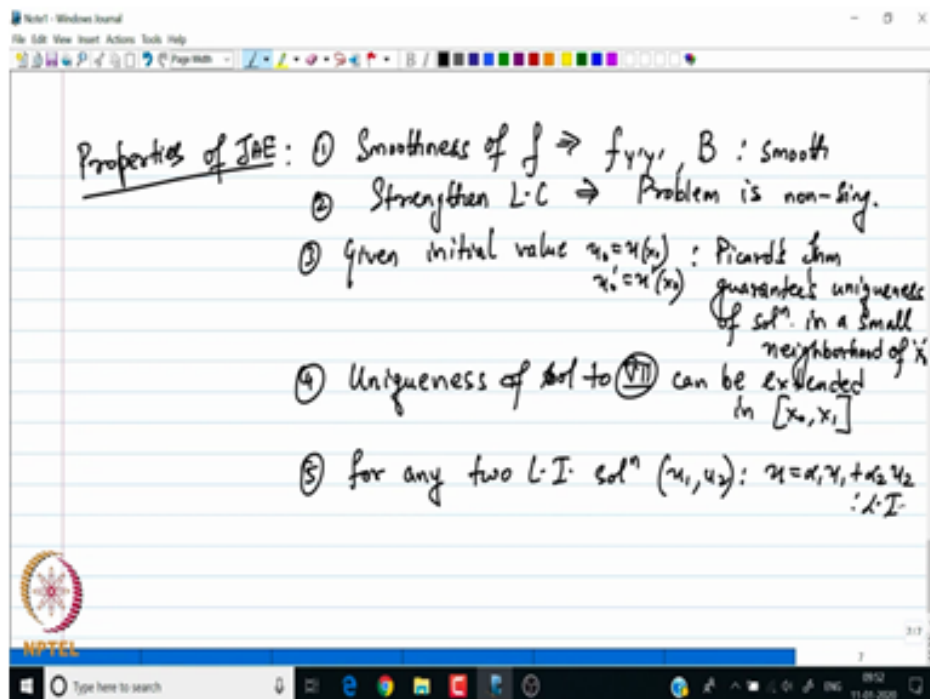 Note1 - Windows Journal
File Edit View Insert Actions Tools Help
Page Width
B I
Properties of JAE: ① Smoothness of f ⇒ fy'y', B : smooth
② Strengthen L.C ⇒ Problem is non-sing.
③ Given initial value u₀=u(x₀) : Picard's thm
u₀'=u'(x₀) guarantees uniqueness
of solⁿ. in a small
neighborhood of x₀
④ Uniqueness of sol to VII can be extended
in [x₀, x₁]
⑤ for any two L.I. solⁿ (u₁, u₂): u=α₁u₁+α₂u₂
: L.I.
NPTEL
7/7
7
Type here to search
ENG
09:52
11-01-2020